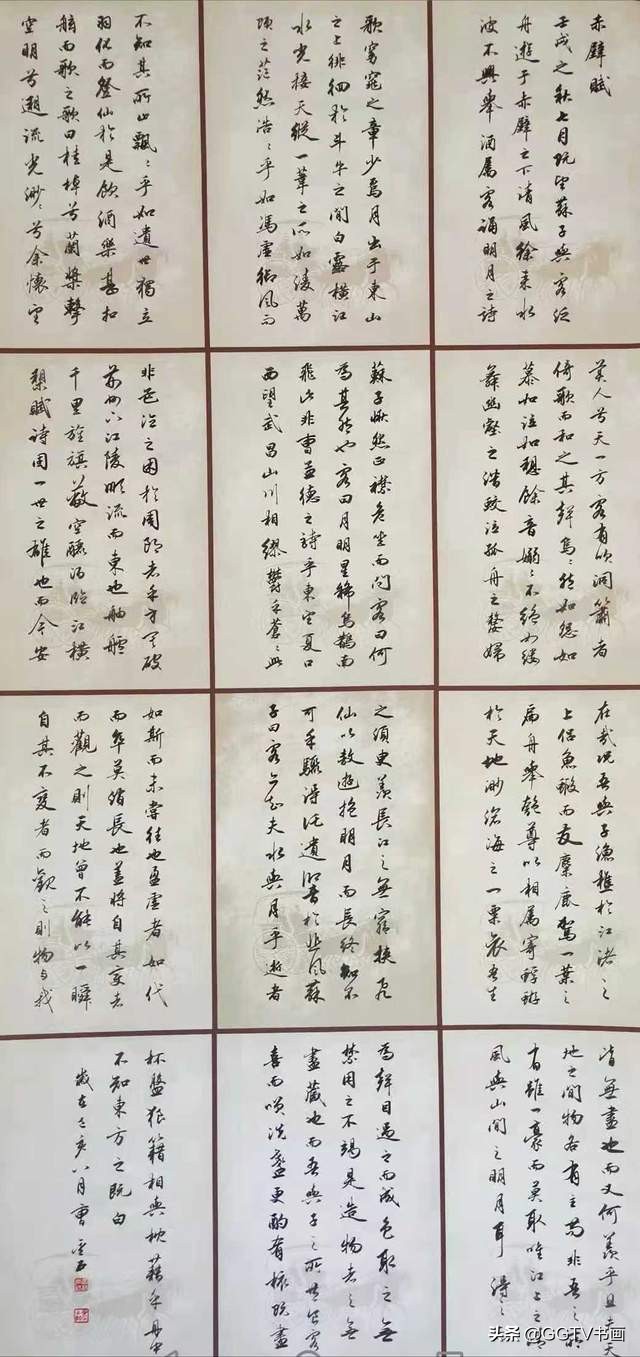 赤壁賦
壬戌之秋七月既望蘇子與客泛
舟遊于赤壁之下清風徐來水
波不興舉酒屬客誦明月之詩
歌窈窕之章少焉月出于東山
之上徘徊於斗牛之間白露橫江
水光接天縱一葦之所如凌萬
頃之茫然浩〃乎如馮虛御風而
不知其所止飄〃乎如遺世獨立
羽化而登仙於是飲酒樂甚扣
舷而歌之歌曰桂棹兮蘭槳擊
空明兮遡流光渺〃兮余懷望
美人兮天一方客有吹洞簫者
倚歌而和之其聲烏〃然如怨如
慕如泣如餘音嫋〃不絕如縷
舞幽壑之潛蛟泣孤舟之嫠婦
蘇子愀然正襟危坐而問客曰何
為其然也客曰月明星稀烏鵲南
飛此非曹孟德之詩乎東望夏口
西望武昌山川相繆鬱乎蒼〃此
非孟德之困於周郎者乎方其破
荊州下江陵順流而東也舳艫
千里旌旗蔽空釃酒臨江橫
槊賦詩固一世之雄也而今安
在哉況吾與子漁樵於江渚之
上侶魚蝦而友麋鹿駕一葉之
扁舟舉匏尊以相屬寄蜉蝣
於天地渺滄海之一粟哀吾生
之須臾羨長江之無窮挾飛
仙以遨遊抱明月而長終知不
可乎驟得託遺響於悲風蘇
子曰客亦知夫水與月乎逝者
如斯而未嘗往也盈虛者如代
而卒莫消長也蓋將自其變者
而觀之則天地曾不能以一瞬
自其不變者而觀之則物與我
皆無盡也而又何羨乎且夫天
地之間物各有主苟非吾之所
有雖一豪而莫取唯江上之清
風與山間之明月耳得之
為聲目遇之而成色取之無
禁用之不竭是造物者之無
盡藏也而吾與子之所共客
喜而笑洗盞更酌肴核既盡
杯盤狼籍相與枕藉乎舟中
不知東方之既白
歲在己亥八月曹
头条 @GGTV书画